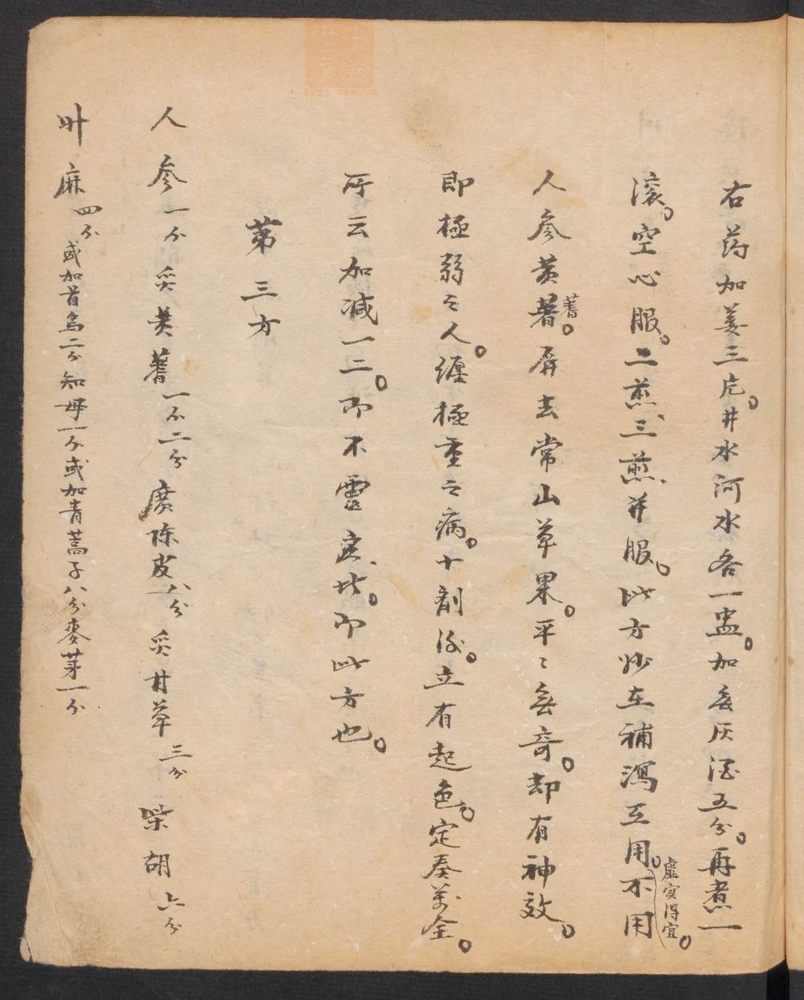 右药加姜三片。井水河水各一盅。加無灰酒五分。再煮一
滚。空心服。二煎、三煎、并服。此方妙在補瀉互用。虚实得宜。不用
人參黄蓍蓍。屏去常山草果。平〻無奇。却有神效。
即極弱之人。纏極重之病。十劑後。立有起色。定奏萬全。
所云加减一二。即不靈應者。即此方也。
第三方
人參一个 炙黄蓍一个二分 廣陈皮八分 炙甘草三分 柴胡六分
升麻四分 或加首烏二个知母一个或加青蒿子八分麥芽一个